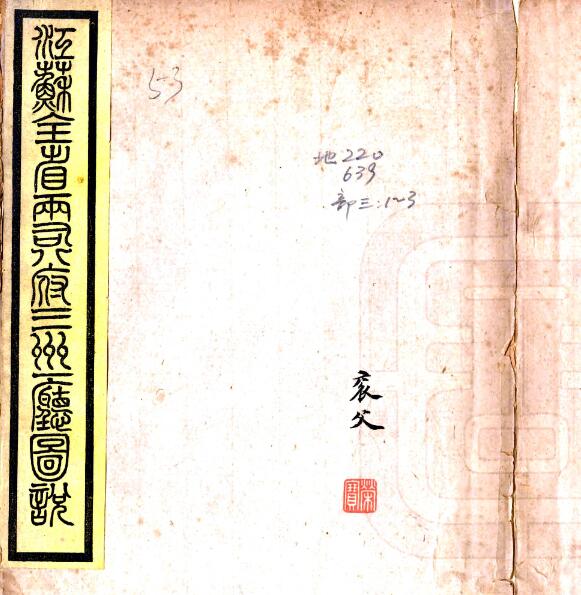 江蘇全省兩司八府三州一廳圖說
53
地220
639
部三:1~3
衮父
榮寶